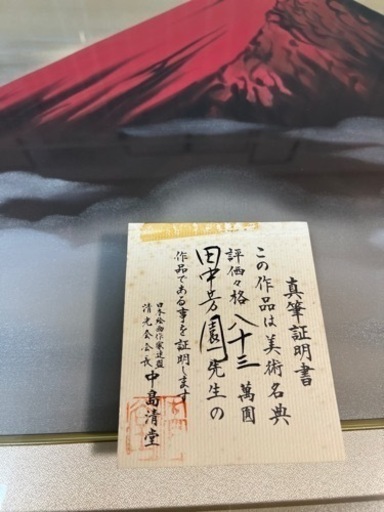 真筆証明書
この作品は美術名典
評価々格八十三萬圓
田中芳園先生の
作品である事を証明します
日本絵画作家連盟
清光会会長 中島清堂